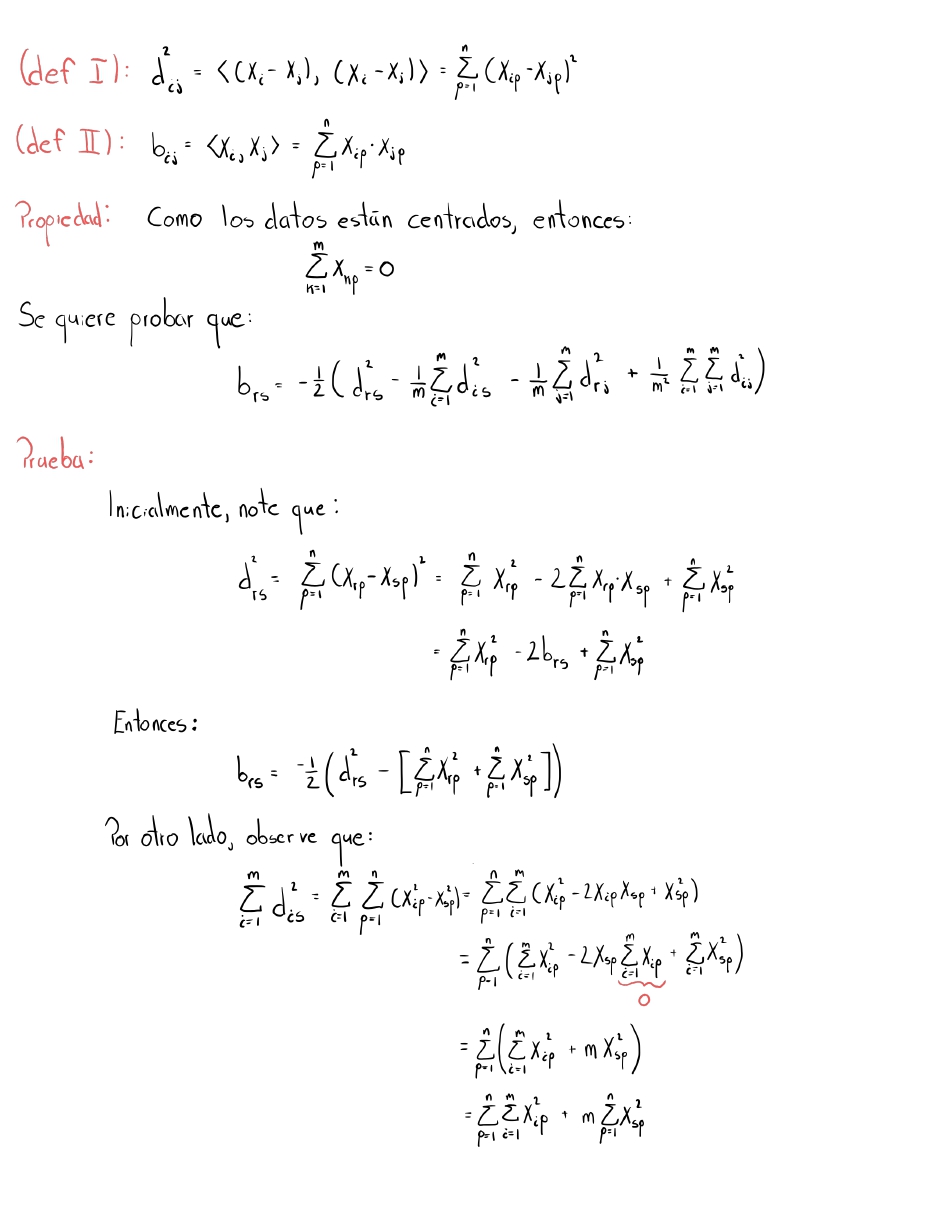 (def I): d²_{ij} = ⟨(X_i - X_j), (X_i - X_j)⟩ = ∑_{p=1}^{n} (X_{ip} - X_{jp})²
(def II): b_{ij} = ⟨X_i, X_j⟩ = ∑_{p=1}^{n} X_{ip} · X_{jp}
Propiedad: Como los datos están centrados, entonces:
∑_{k=1}^{m} X_{kp} = 0
Se quiere probar que:
b_{rs} = -½ ( d²_{rs} - 1/m ∑_{i=1}^{m} d²_{is} - 1/m ∑_{j=1}^{m} d²_{rj} + 1/m² ∑_{i=1}^{m} ∑_{j=1}^{m} d²_{ij} )
Prueba:
Inicialmente, note que:
d²_{rs} = ∑_{p=1}^{n} (X_{rp} - X_{sp})² = ∑_{p=1}^{n} X²_{rp} - 2 ∑_{p=1}^{n} X_{rp} · X_{sp} + ∑_{p=1}^{n} X²_{sp}
= ∑_{p=1}^{n} X²_{rp} - 2b_{rs} + ∑_{p=1}^{n} X²_{sp}
Entonces:
b_{rs} = -½ ( d²_{rs} - [ ∑_{p=1}^{n} X²_{rp} + ∑_{p=1}^{n} X²_{sp} ] )
Por otro lado, observe que:
∑_{i=1}^{m} d²_{is} = ∑_{i=1}^{m} ∑_{p=1}^{n} (X²_{ip} - X²_{sp}) = ∑_{p=1}^{n} ∑_{i=1}^{m} (X²_{ip} - 2X_{ip} X_{sp} + X²_{sp})
= ∑_{p=1}^{n} ( ∑_{i=1}^{m} X²_{ip} - 2X_{sp} ∑_{i=1}^{m} X_{ip} + ∑_{i=1}^{m} X²_{sp} )
0
= ∑_{p=1}^{n} ( ∑_{i=1}^{m} X²_{ip} + m X²_{sp} )
= ∑_{p=1}^{n} ∑_{i=1}^{m} X²_{ip} + m ∑_{p=1}^{n} X²_{sp}